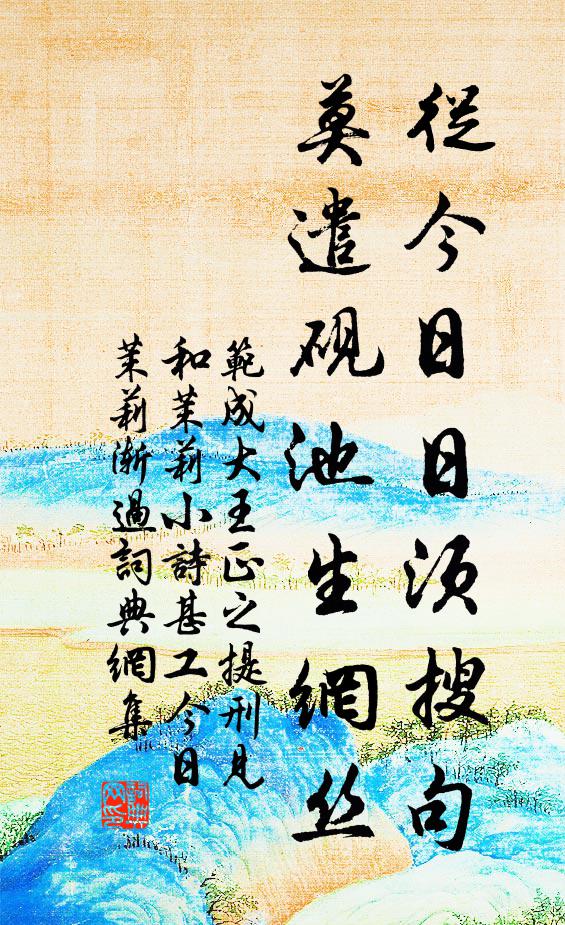 從今日日須搜句
莫遣硯池生網絲
範成大王正之提刑見
和茉莉小詩甚工今日
茉莉漸過詞典網集